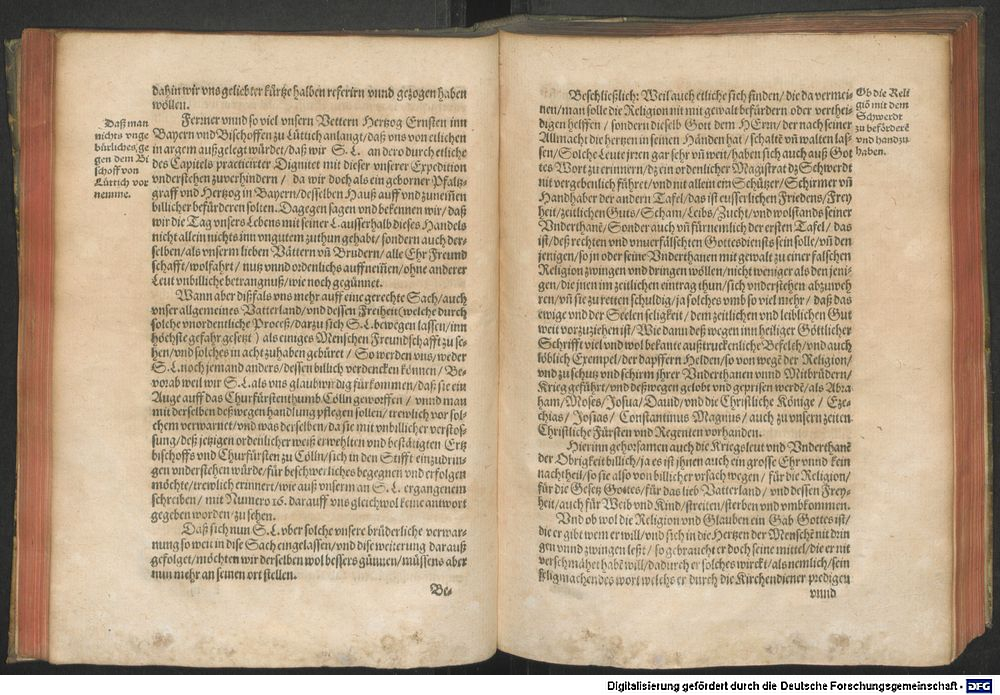 dahin wir vns geliebter kürtze halben referirn vnnd gezogen haben
wöllen.
Daß man
nichts vnge
bürliches, ge
gen dem Bi
schoff von
Lüttich vor
nemme.
Ferner vnnd so viel vnsern Vettern Hertzog Ernsten inn
Bayern vnd Bischoffen zu Lüttich anlangt/ daß vns von etlichen
in argem außgelegt würdet/ daß wir S. L. an dero durch etliche
des Capitels practicierter Dignitet mit dieser vnserer Expedition
vnderstehen zuverhindern / da wir doch als ein geborner Pfaltz-
graff vnd Hertzog in Bayern/ desselben Hauß auff vnd zunemē
billicher befürderen solten. Dagegen sagen vnd bekennen wir/ daß
wir die Tag vnsers Lebens mit seiner L. ausserhalb dieses Handels
nicht allein nichts inn vngutem zuthun gehabt/ sondern auch der-
selben/ als vnserm lieben Vättern vñ Brudern/ alle Ehr Freund
schafft/ wolfahrt/ nutz vnnd ordenlichs auffnemē/ ohne anderer
Leut vnbilliche betrangnuß/ wie noch gegünnet.
Wann aber dißfals vns mehr auff eine gerechte Sach/ auch
vnser allgemeines Vatterland/ vnd dessen Freiheit (welche durch
solche vnordentliche Proceß/ darzu sich S. L. bewegen lassen/ inn
höchste gefahr gesetzt) als einiges Menschen Freundschafft zu se-
hen/ vnd solches in acht zuhaben gebüret / So werden vns/ weder
S. L. noch jemand anders/ dessen billich verdencken können / Be-
vorab weil wir S. L. als vns glaubwirdig fürkommen/ daß sie ein
Auge auff das Churfürstenthumb Cölln geworffen / vnnd man
mit derselben deßwegen handlung pflegen sollen/ trewlich vor sol-
chem verwarnet/ vnd was derselben/ da sie mit vnbillicher verstos-
sung/ deß jetzigen ordenlicher weiß erwehlten vnd bestätigten Ertz
bischoffs vnd Churfürsten zu Cölln/ sich in den Stifft einzudrin
gen vnderstehen würde/ für beschwerliches begegnen vnd erfolgen
möchte/ trewlich erinnert/ wie auß vnserm an S. L. ergangenem
schreiben/ mit Numero 16. darauff vns gleichwol keine antwort
gegeben worden/ zu sehen.
Daß sich nun S. L. vber solche vnsere brüderliche verwar-
nung so weit in dise Sach eingelassen/ vnd dise weiterung darauß
gefolget/ möchten wir derselben wol bessers günnen/ müssens aber
nun mehr an seinen ort stellen.
Be-
Beschließlich: Weil auch etliche sich finden/ die da vermei-
nen/ man solle die Religion nit mit gewalt befürdern oder verthei-
digen helffen / sondern dieselb Gott dem HErrn/ der nach seiner
Allmacht die hertzen in seinen Händen hat/ schaltē vñ walten las-
sen/ Solche Leute jrren gar sehr vñ weit/ haben sich auch auß Got
tes Wort zu erinnern/ dz ein ordenlicher Magistrat dz Schwerdt
nit vergebenlich führet/ vnd nit allein ein Schützer/ Schirmer vñ
Handhaber der andern Tafel/ das ist eusserlichen Friedens/ Frey
heit/ zeitlichen Guts/ Scham/ Leibs/ Zucht/ vnd wolstands seiner
Vnderthanē/ Sonder auch vñ fürnemlich der ersten Tafel / das
ist/ deß rechten vnd vnuerfälschten Gottesdiensts sein solle/ vñ den
jenigen/ so in oder seine Vnderthanen mit gewalt zu einer falschen
Religion zwingen vnd dringen wöllen/ nicht weniger als den jeni-
gen/ die jnen im zeitlichen eintrag thun/ sich vnderstehen abzuweh
ren/ vñ sie zu retten schuldig/ ja solches vmb so viel mehr / daß das
ewige vnd der Seelen seligkeit / dem zeitlichen vnd leiblichen Gut
weit vorzuziehen ist/ Wie dann deß wegen inn heiliger Göttlicher
Schrifft viel vnd wol bekante außtruckenliche Befelch/ vnd auch
löblich Exempel/ der dapffern Helden/ so von wegē der Religion/
vnd zu schutz vnd schirm jhrer Vnderthanen vnnd Mitbrüdern/
Krieg geführt/ vnd deßwegen gelobt vnd geprisen werdē/ als Abra
ham/ Moses/ Josua/ Dauid/ vnd die Christliche Könige / Eze-
chias/ Josias/ Constantinus Magnus/ auch zu vnsern zeiten
Christliche Fürsten vnd Regenten vorhanden.
Ob die Reli
giō mit dem
Schwerdt
zu befördern
vnd handzu-
haben.
Hierinn gehorsamen auch die Kriegsleut vnd Vnderthanē
der Obrigkeit billich/ ja es ist jhnen auch ein grosse Ehr vnnd kein
nachtheil/ so sie also von billicher vrsach wegen / für die Religion/
für die Gesetz Gottes/ für das lieb Vatterland / vnd dessen Frey-
heit/ auch für Weib vnd Kind/ streiten/ sterben vnd vmbkommen.
Vnd ob wol die Religion vnd Glauben ein Gab Gottes ist/
die er gibt wem er will/ vnd sich in die Hertzen der Menschē nit drin
gen vnnd zwingen leßt / so gebraucht er doch seine mittel/ die er nit
verschmähet habē will/ dadurch er solches wirckt/ als nemlich/ sein
seligmachendes wort welchs er durch die Kirchendiener predigen
vnnd
Digitalisierung gefördert durch die Deutsche Forschungsgemeinschaft - DFG